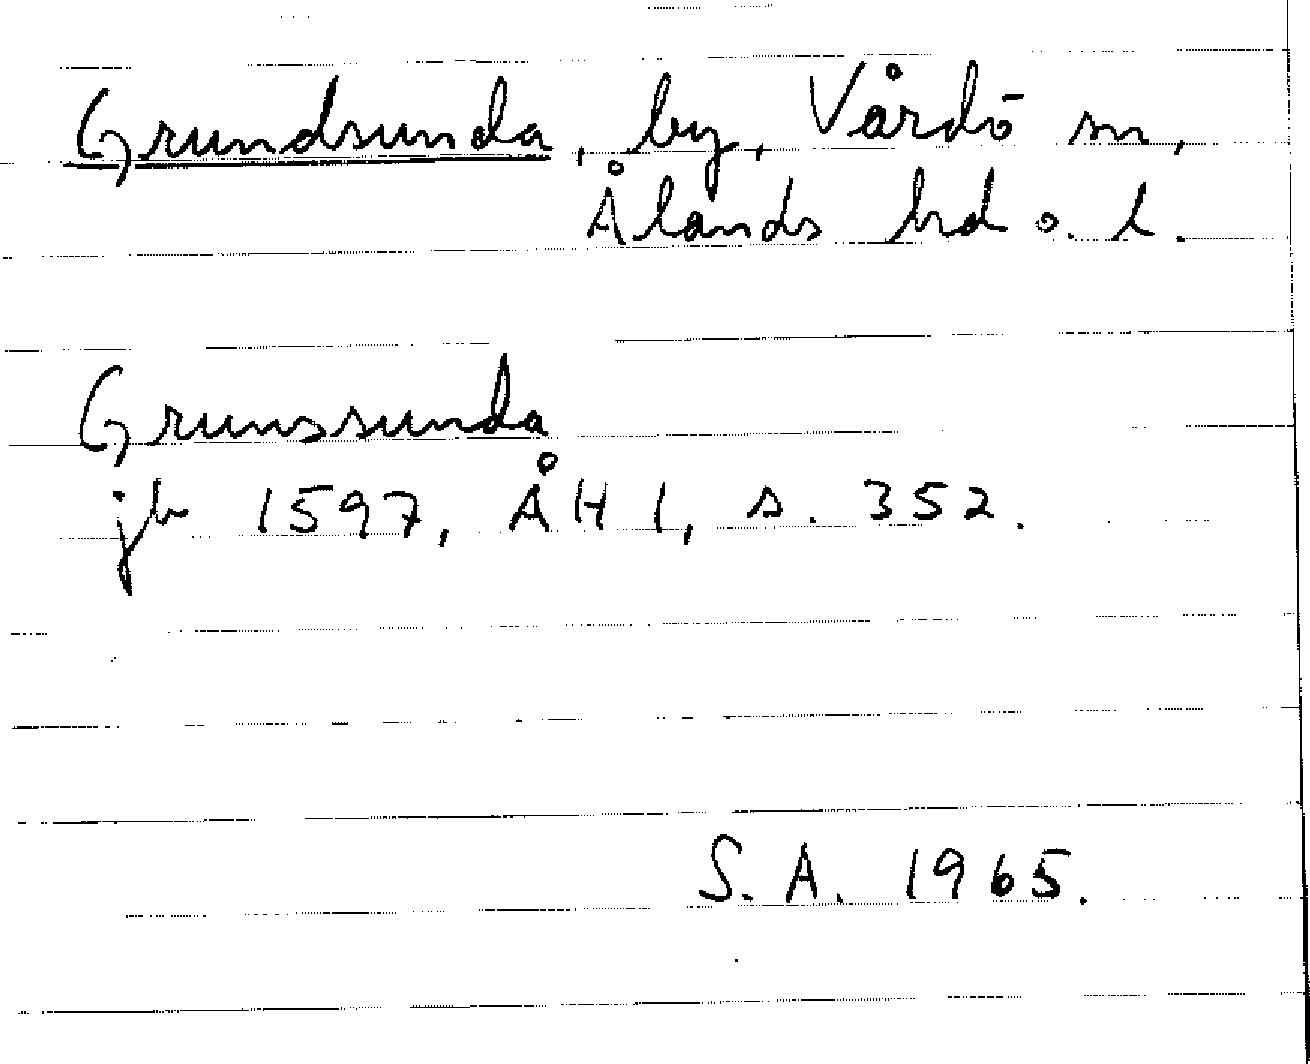 Grundsunda, by, Vårdö sn,
Ålands hd o. l.
Grunssunda
jb 1597, ÅH 1, s. 352.
S. A. 1965.